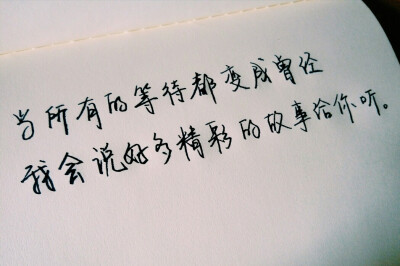 当所有的等待都变成曾经
我会说好多精彩的故事给你听。